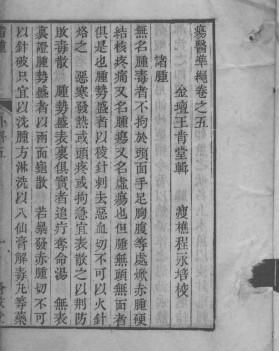 瘍醫準繩卷之五
金壇王肯堂輯　瘦樵程永培校
諸腫
無名腫毒者不拘於頭面手足胸腹等處焮赤腫硬
結核疼痛又名腫瘍又名虛瘍也但腫無頭無面者
俱是也腫勢盛者以稜針刺去惡血切不可以火針
烙之　惡寒發熱或頭疼或拘急宜表散之以荆防
敗毒散　腫勢盛表裏俱實者追疔奪命湯　無表
裏證腫勢盛者以兩面龜散　若暴發赤腫切不可
以針破只宜以洗腫方淋洗以八仙膏解毒丸等藥